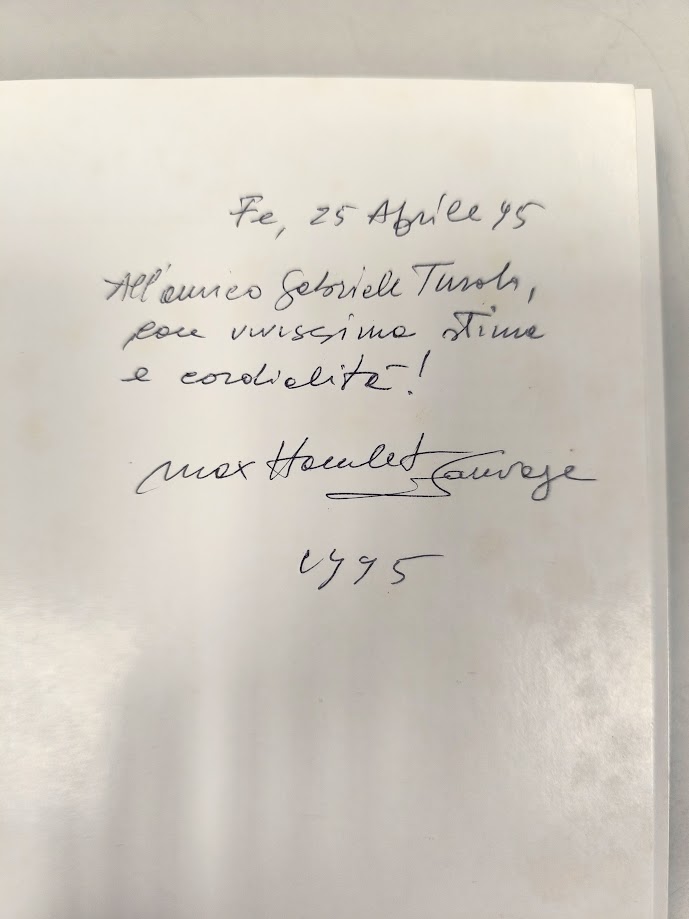 Fe, 25 Aprile 95
All'amico Gabriele Turola,
con vivissima stima
e cordialità!
Max Hamlet Sauvage
1995